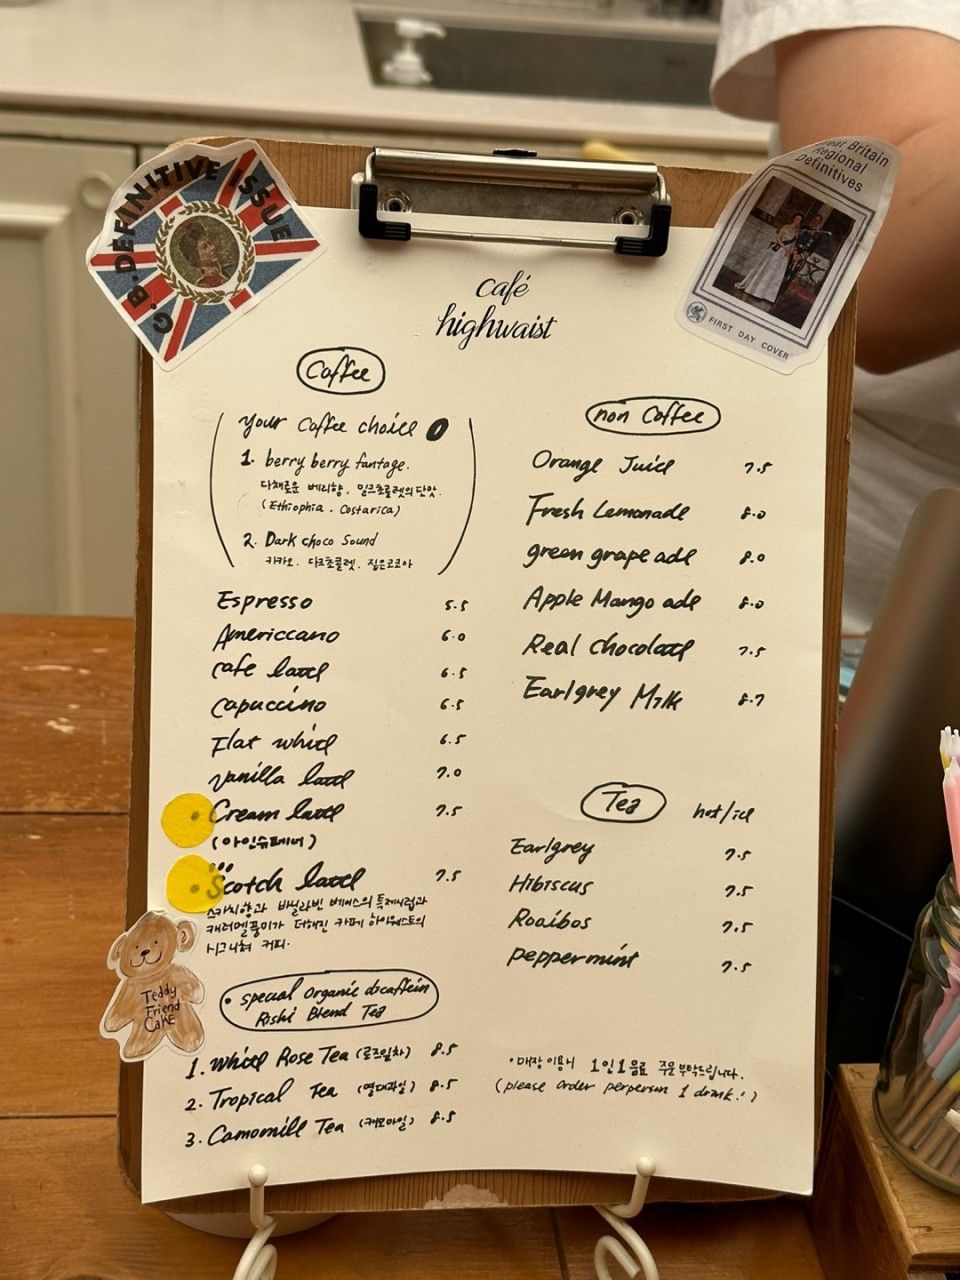 G.B. DEFINITIVE ISSUE
Great Britain
Regional
Definitives
FIRST DAY COVER
café
highwaist
Coffee
Your Coffee choice
1. berry berry fantage.
다채로운 베리향, 밀크초콜렛의 단맛.
(Ethiophia . Costarica)
2. Dark choco Sound
카카오, 다크초콜렛, 짙은코코아
Espresso 5.5
Americcano 6.0
cafe latte 6.5
capuccino 6.5
Flat white 6.5
vanilla latte 7.0
Cream latte 7.5
(아인슈페너)
Scotch latte 7.5
스카치향과 바닐라빈 베이스의 특제시럽과
캐러멜풍미가 더해진 카페 하이웨스트의
시그니쳐 커피.
Teddy
Friend
CaKE
• special Organic decaffein
Rishi Blend Tea
1. White Rose Tea (로즈잎차) 8.5
2. Tropical Tea (열대과일) 8.5
3. Camomill Tea (캐모마일) 8.5
non Coffee
Orange Juice 7.5
Fresh Lemonade 8.0
green grape ade 8.0
Apple Mango ade 8.0
Real chocolate 7.5
Earlgrey Milk 8.7
Tea hot/ice
Earlgrey 7.5
Hibiscus 7.5
Rooibos 7.5
peppermint 7.5
• 매장 이용시 1인 1음료 주문 부탁드립니다.
(please order perperson 1 drink :))